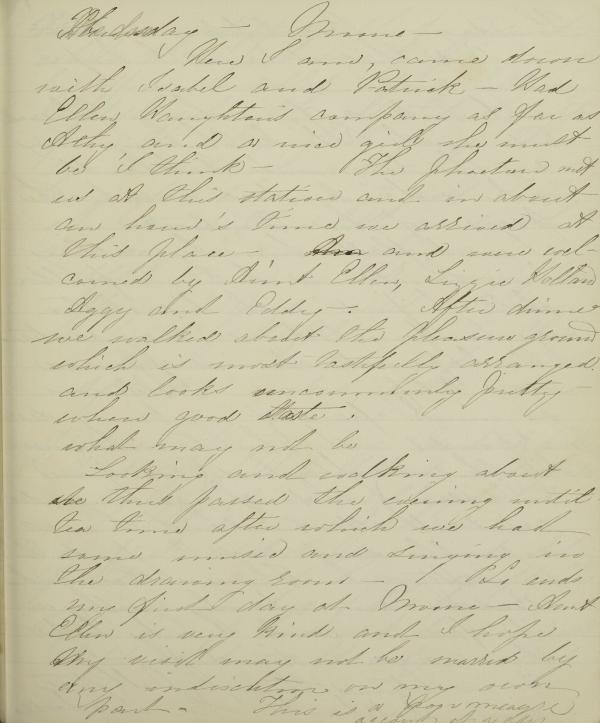 Wednesday — Moone —
Here I am, came down
with Isabel and Patrick — Had
Ellen Haughton's company as far as
Athy and a nice girl she must
be I think — The phaeton met
us at this station and in about
an hour's time we arrived at
this place — and were wel-
comed by Aunt Ellen, Lizzie Holland
Aggy and Eddy —. After dinner
we walked about the pleasure ground
which is most tastefully arranged.
and looks uncommonly pretty —
where good taste.
what may not be
Looking and walking about
we thus passed the evening until
tea time after which we had
some music and singing in
the drawing room — So ends
my first day at Moone — Aunt
Ellen is very kind and I hope
my visit may not be marred by
any indiscretion on my own
part — This is a